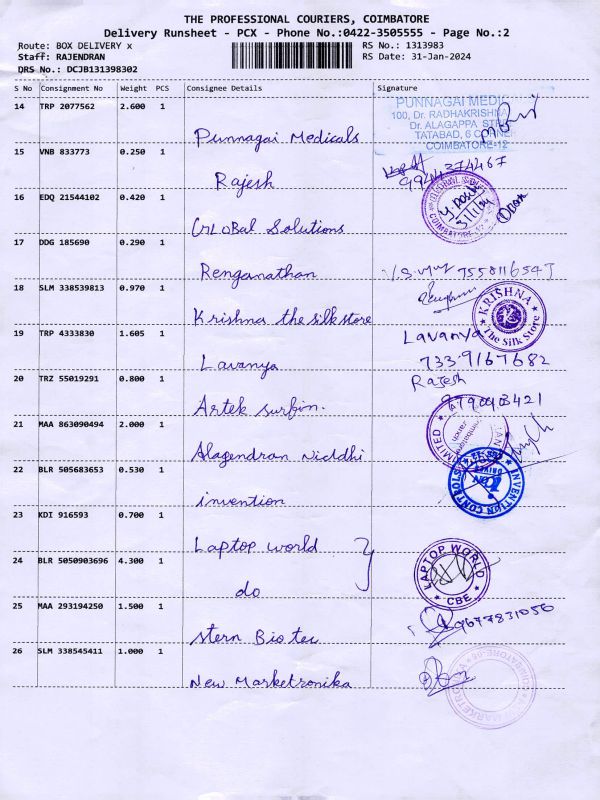 THE PROFESSIONAL COURIERS, COIMBATORE
Delivery Runsheet - PCX - Phone No.:0422-3505555 - Page No.:2
Route: BOX DELIVERY x
RS No.: 1313983
Staff: RAJENDRAN
RS Date: 31-Jan-2024
DRS No.: DCJB131398302
S No Consignment No Weight PCS Consignee Details Signature
14 TRP 2077562 2.600 1
PUNNAGAI MEDIC
100, Dr. RADHAKRISHNA
Dr. ALAGAPPA
TATABAD, 6 CORNER
COIMBATORE-12
Punnagai Medicals
15 VNB 833773 0.250 1
9944374467
Rajesh
16 EDQ 21544102 0.420 1
COIMBATORE
GLOBal Solutions
17 DDG 185690 0.290 1
Renganathan
18 SLM 338539813 0.970 1
KRISHNA
The Silk Store
Krishna the silk store
19 TRP 4333830 1.605 1
Lavanya
733 9167682
Lavanya
20 TRZ 55019291 0.800 1
Rajesh
Artek surfin.
21 MAA 863090494 2.000 1
LIMITED
Alagendran Niddhi
22 BLR 505683653 0.530 1
INVENTION CONTROLS
invention
23 KDI 916593 0.700 1
Laptop world
24 BLR 5050903696 4.300 1
LAPTOP WORLD
CBE
do
25 MAA 293194250 1.500 1
9677831056
stern Bio tec
26 SLM 338545411 1.000 1
New Marketronika